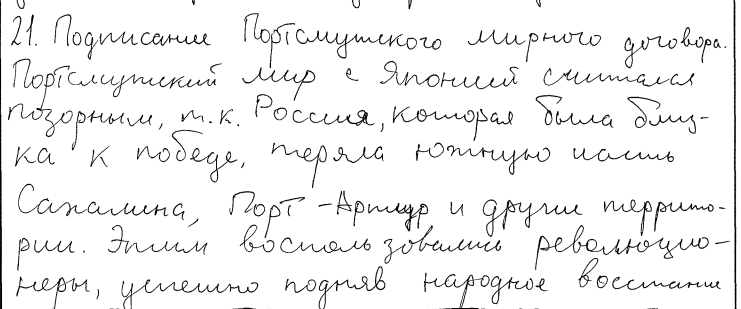 21. Подписание Портсмутского мирного договора.
Портсмутский мир с Японией считался
позорным, т.к. Россия, которая была близ-
ка к победе, теряла южную часть
Сахалина, Порт-Артур и другие террито-
рии. Этим воспользовались революцио-
неры, успешно подняв народное восстание